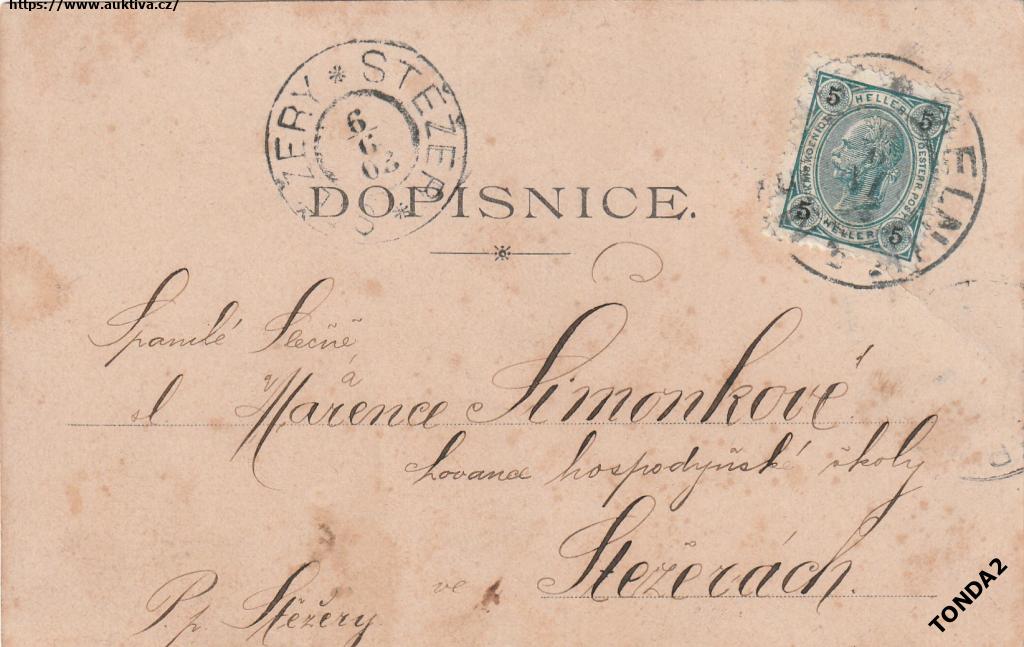 https://www.auktiva.cz/
STĚŽERY * STĚŽERY *
6/6 02
5 HELLER 5
5 HELLER 5
DOPISNICE.
Spanilé Slečně
sl Mařence Šimonkové
chovance hospodyňské školy
ve Stěžerách.
Pp. Stěžery
TONDA2